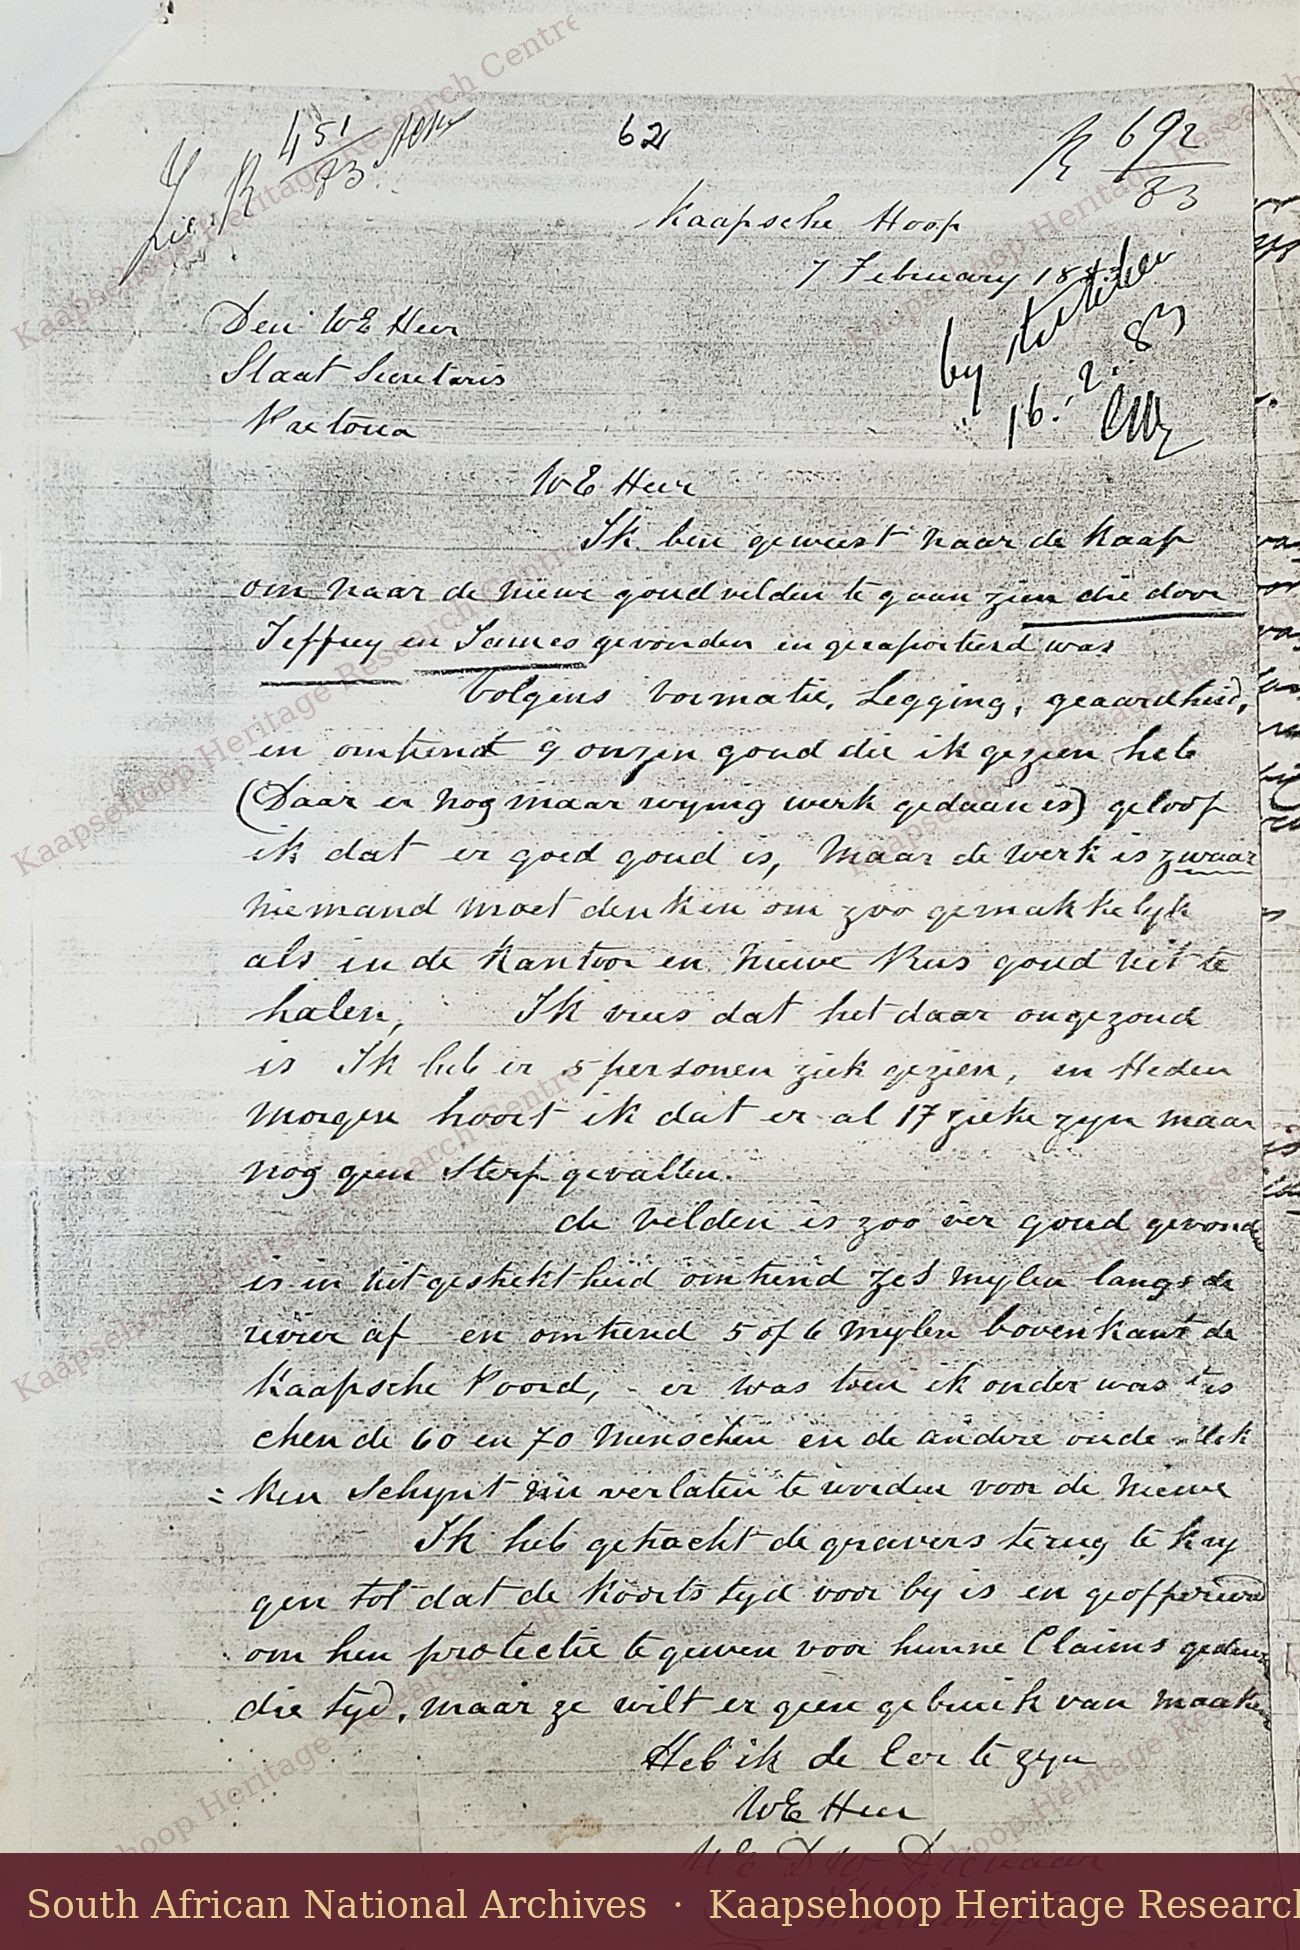 Zie R 451/83
62
R 692/83
Kaapsche Hoop
7 February 1883
by
16.2.83
Den WE Heer
Staat Secretaris
Pretoria
WE Heer
Ik ben geweest naar de Kaap
om naar de nieuwe goudvelden te gaan zien die door
Jeffrey en James gevonden en gerapporteerd was
Volgens vormatie, Legging, geaardheid,
en omtrend 9 onzen goud die ik gezien heb
(Daar er nog maar wynig werk gedaan is) geloof
ik dat er goed goud is, Maar de werk is zwaar
niemand moet denken om zoo gemakkelyk
als in de Kantoor en Nieuwe Rus goud uit te
halen, Ik vrees dat het daar ongezond
is Ik heb er 5 personen ziek gezien, en Heden
morgen hoort ik dat er al 17 zieke zyn maar
nog geen Sterf gevallen.
de velden is zoo ver goud gevonden
is in uitgestrektheid omtrend zes mylen langs de
rivier af en omtrend 5 of 6 mylen bovenkant de
Kaapsche Poord, er was toen ik onder was tus
chen de 60 en 70 Menschen en de andere oude plek
= ken Schynt nu verlaten te worden voor de nieuwe
Ik heb getracht de gravers terug te kry
gen tot dat de Koorts tyd voor by is en geofferierd
om hen protectie te geven voor hunne Claims gedeur
die tyd, maar ze wilt er geen gebruik van maaken
Heb ik de Eer te zyn
WE Heer
UE DW Dienaar
South African National Archives · Kaapsehoop Heritage Research
Kaapsehoop Heritage Research Centre